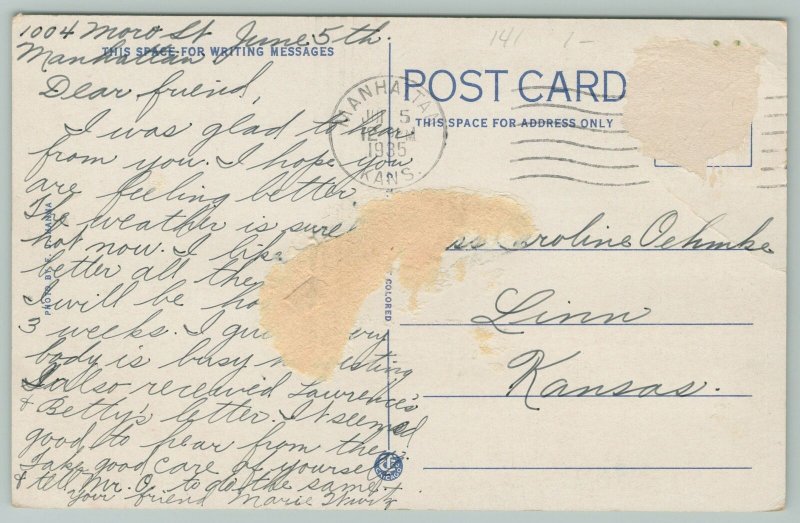 1004 Moro St June 5th.
Manhattan
THIS SPACE FOR WRITING MESSAGES
Dear friend,
I was glad to hear
from you. I hope you
are feeling better
The weather is sure
hot now. I like
better all the
I will be
3 weeks. I
body is busy
I also received Lawrence's
& Betty's letter. It seemed
good to hear from them.
Take good care of yourself
& tell Mr. O. to do the same.
Your friend Marie
PHOTO BY F.
COLORED
POST CARD
THIS SPACE FOR ADDRESS ONLY
MANHATTAN
5
12 M
1935
KANS.
141 1-
Caroline Oehmke
Linn
Kansas.
CHICAGO